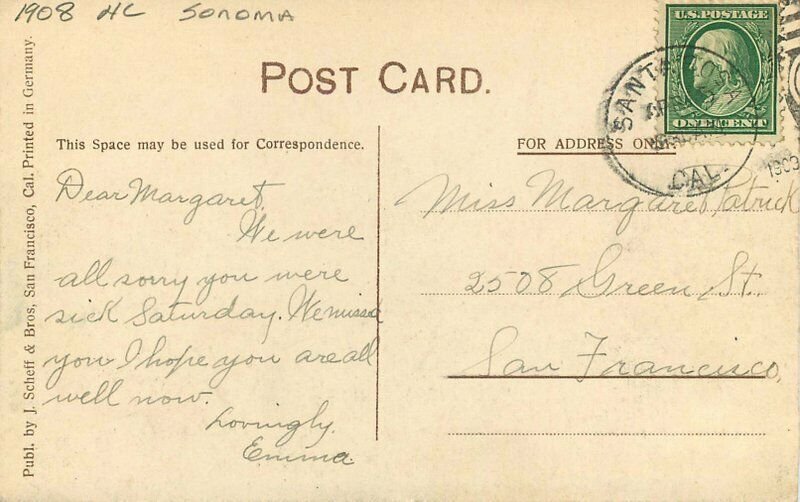 1908 HC SONOMA
U.S. POSTAGE
ONE CENT
SANTA ROSA
CAL.
1909
POST CARD.
This Space may be used for Correspondence.
FOR ADDRESS ONLY
Dear Margaret,
We were
all sorry you were
sick Saturday. We missed
you I hope you are all
well now.
Lovingly,
Emma.
Miss Margaret Patrick
2508 Green St.
San Francisco,
Publ. by J. Scheff & Bros, San Francisco, Cal. Printed in Germany.